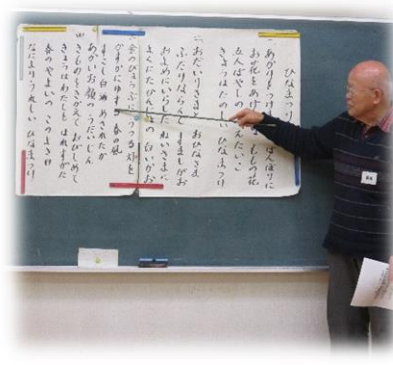 ひなまつり
一 あかりをつけ ぼんぼりに
お花をあげ ももの花
五人ばやしの たいこ
きょうはたのしい ひなまつり
二 おだいりさまと おひなさま
ふたりならんで すましがお
およめにいらした ねえさまに
よくにた の 白いかお
三 金のびょうぶに うつる灯を
かすかにゆする 春の風
すこし白酒 めされたか
あかいお顔の うだいじん
四 きものをきがえて おびしめて
きょうはわたしも はれすがた
春のやよいの このよきひ
なによりうれしい ひなまつり